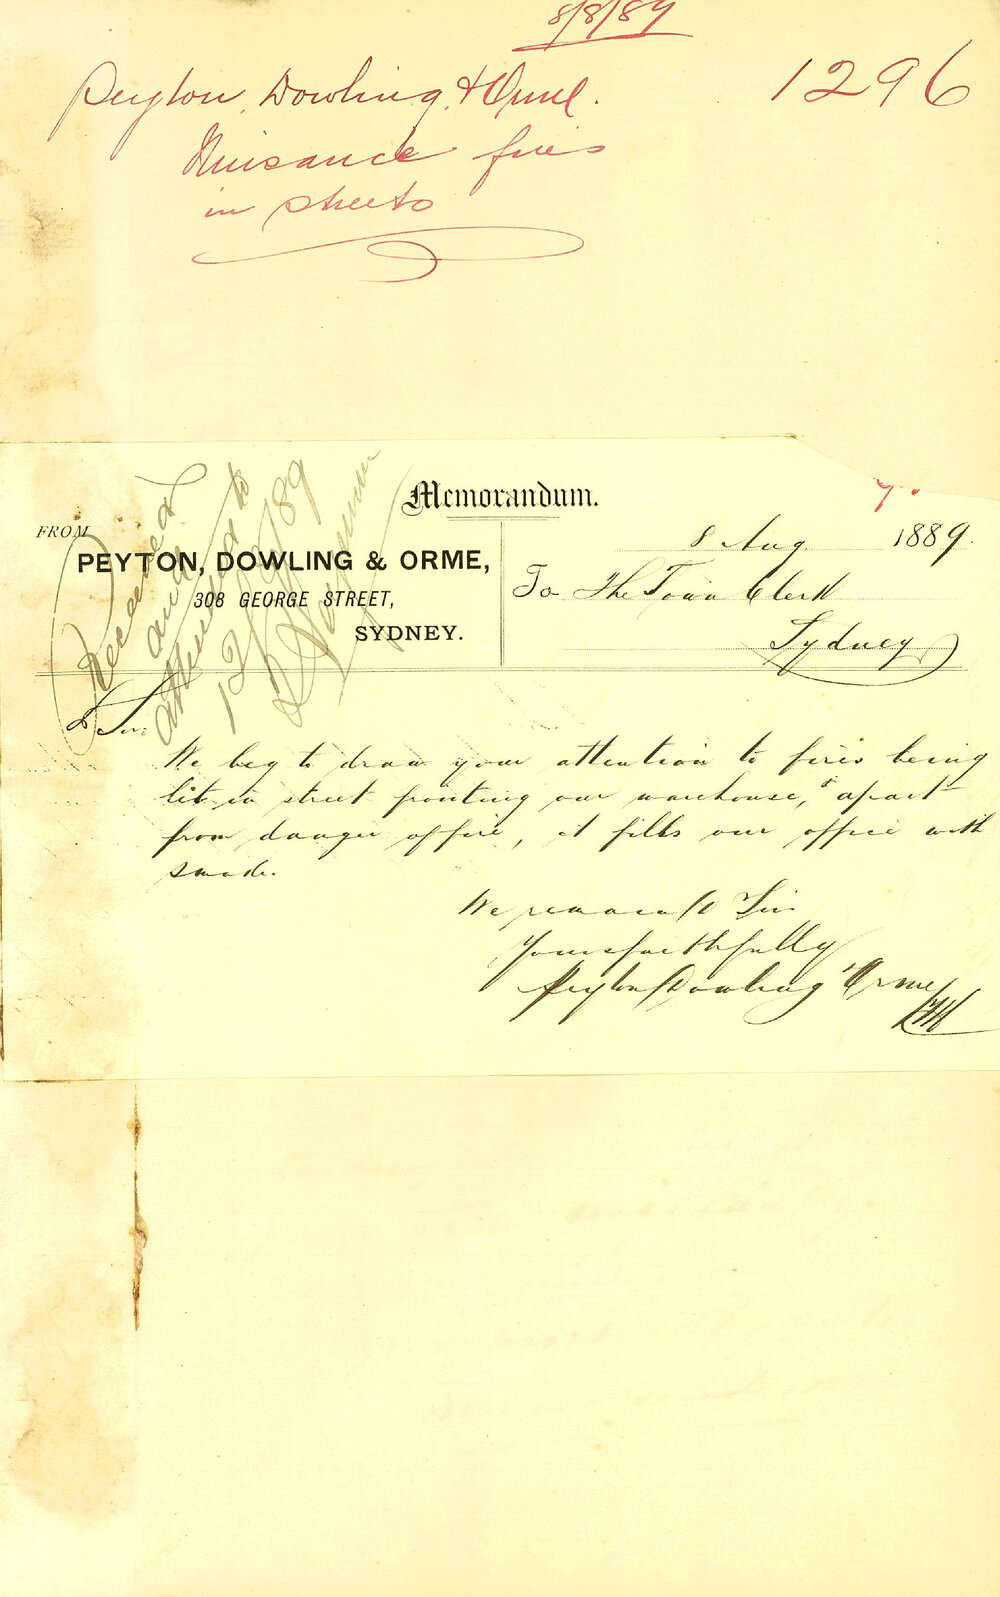 8/8/89
1296
Peyton, Dowling, & Orme.
Nuisance fires
in streets
Memorandum.
FROM
PEYTON, DOWLING & ORME,
308 GEORGE STREET,
SYDNEY.
8 Aug 1889.
To The Town Clerk
Sydney
Received
and
attended to
12/8/89
Dr Sir
We beg to draw your attention to fires being
lit in street fronting our warehouse, & apart
from danger of fire, it fills our office with
smoke.
We remain Dr Sir
Yours faithfully
Peyton Dowling & Orme